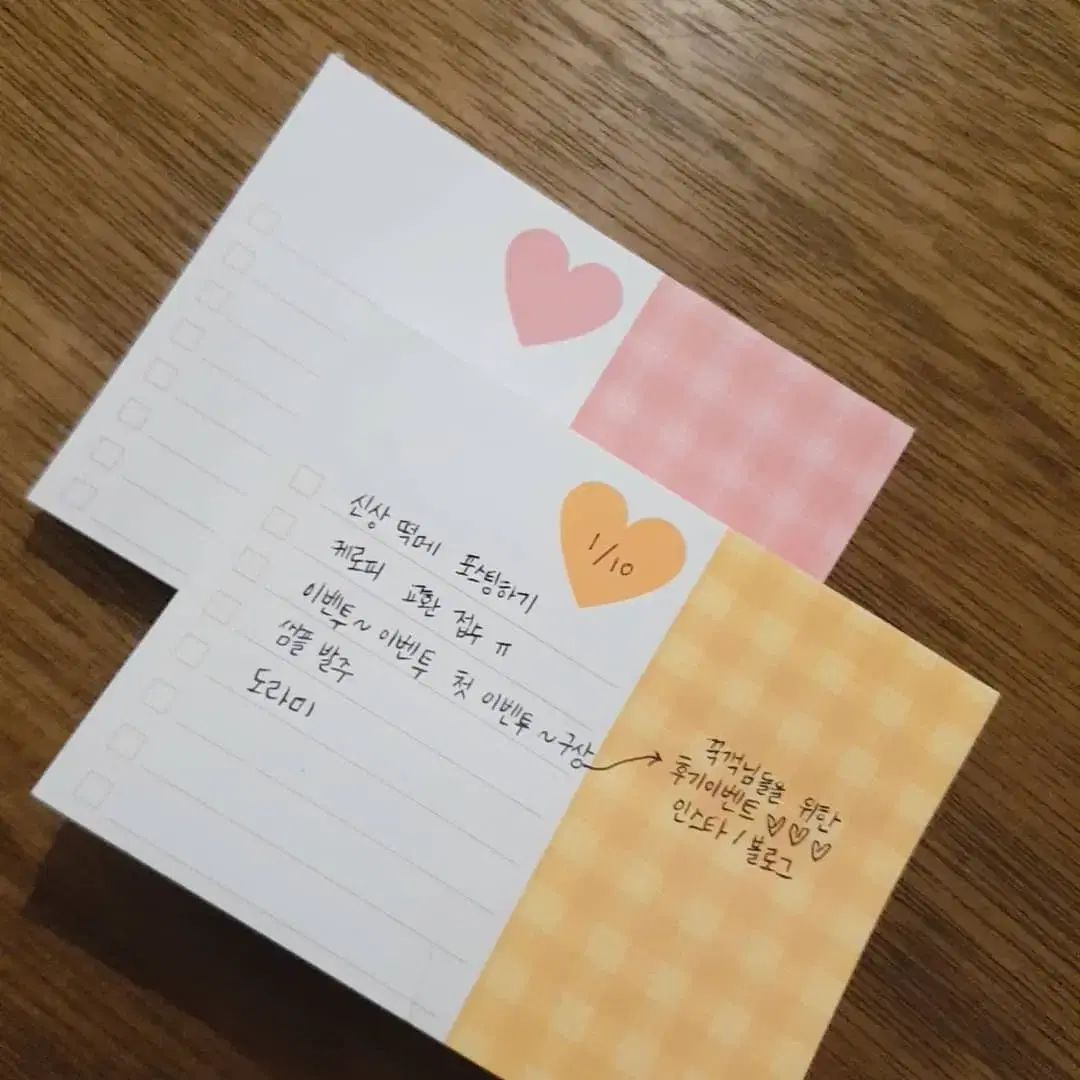 1/10
신상 떡메 포스팅하기
케로피 교환 접수 ㅠ
이벤투~ 이벤투 첫 이벤투~구상
샘플 발주
도라미
꾹객님들을 위한
후기이벤트♡♡♡
인스타/블로그